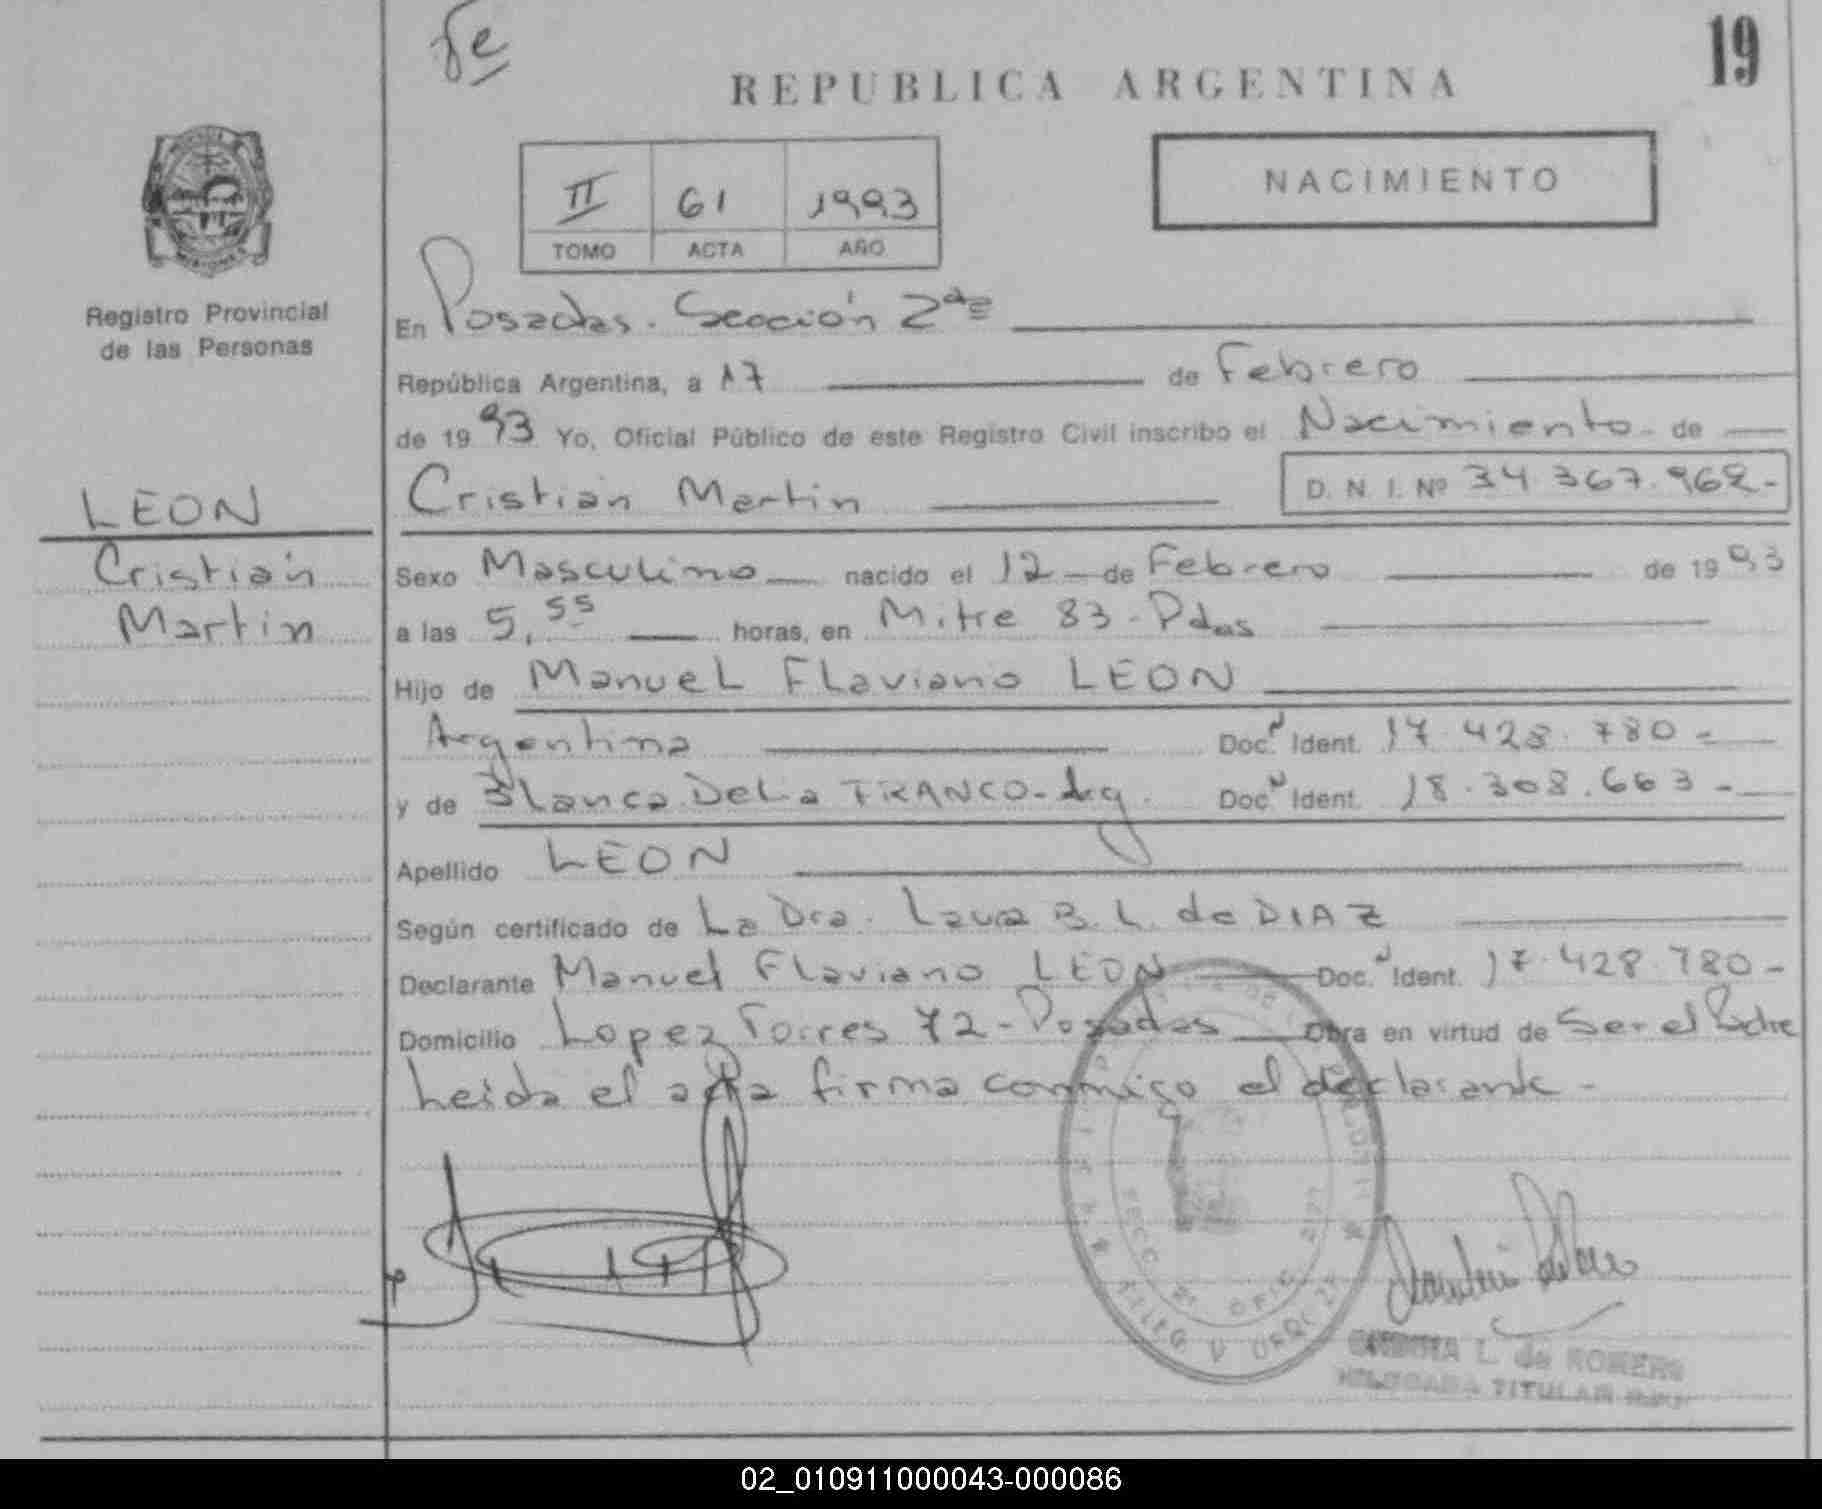 fe
19
REPUBLICA ARGENTINA
II 61 1993
TOMO ACTA AÑO
NACIMIENTO
Registro Provincial
de las Personas
En Posadas. Sección 2da
República Argentina, a 17 de Febrero
de 1993 Yo, Oficial Público de este Registro Civil inscribo el Nacimiento de
Cristian Martin D. N. I. Nº 34.367.962-
LEON
Cristian
Martin
Sexo Masculino nacido el 12 de Febrero de 1993
a las 5,55 horas, en Mitre 83-Pdas
Hijo de Manuel Flaviano LEON
Argentina Doc. Ident. 17.428.780-
y de Blanca DeLia FRANCO-Arg. Doc. Ident. 18.308.663-
Apellido LEON
Según certificado de La Dra. Laura B. L. de DIAZ
Declarante Manuel Flaviano LEON Doc. Ident. 17.428.780-
Domicilio Lopez Torres 72-Posadas Obra en virtud de Ser el Padre
Leida el acta firma conmigo el declarante-
L. de ROMERO
TITULAR
02_010911000043-000086